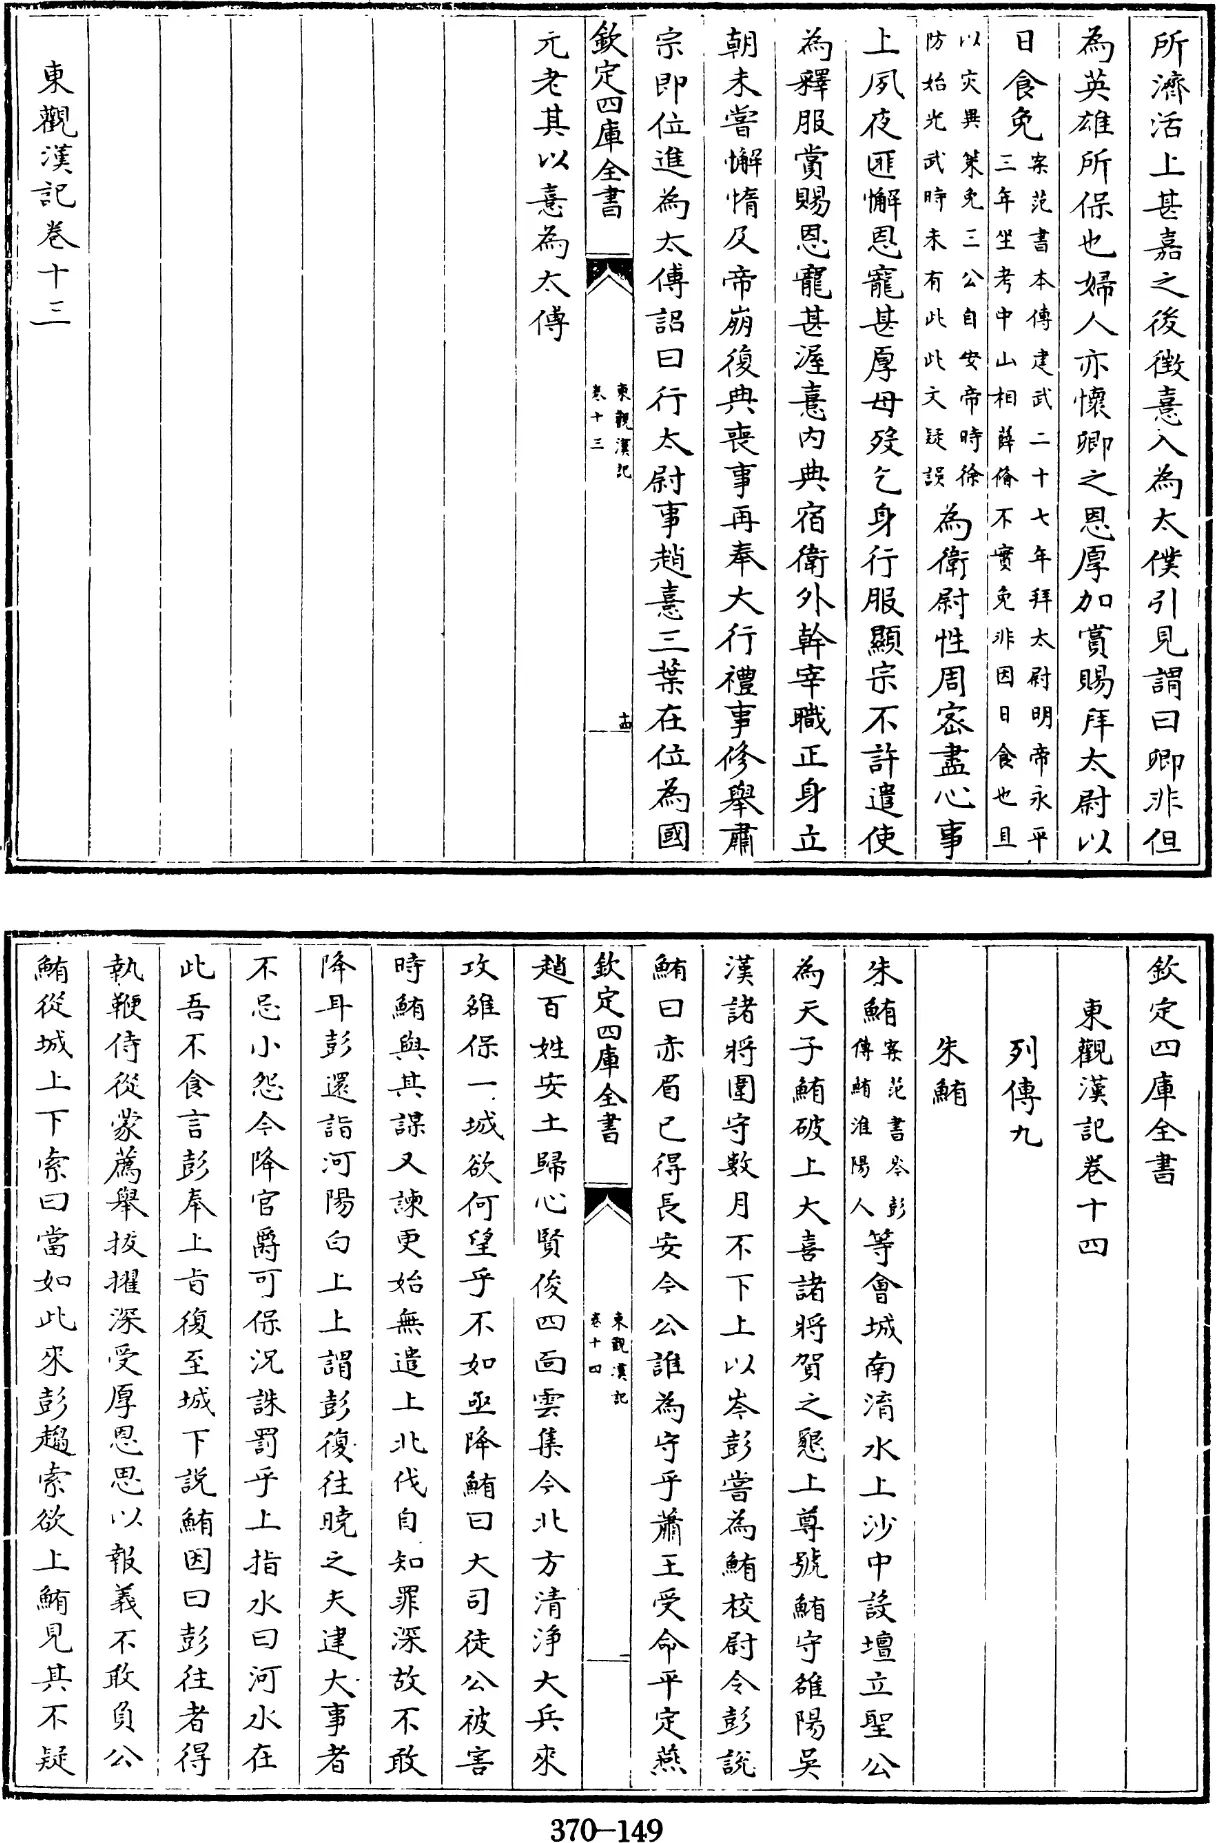 所濟活上甚嘉之後徴憙入為太僕引見謂曰卿非但
為英雄所保也婦人亦懷卿之恩厚加賞賜拜太尉以
日食免案范書本傳建武二十七年拜太尉明帝永平
三年坐考中山相薛脩不實免非因日食也且
以灾異䇿免三公自安帝時徐
防始光武時未有此此文疑誤為衛尉性周宻盡心事
上夙夜匪懈恩寵甚厚母歿乞身行服顯宗不許遣使
為釋服賞賜恩寵甚渥憙内典宿衛外幹宰職正身立
朝未嘗懈惰及帝崩復典喪事再奉大行禮事修舉肅
宗即位進為太傅詔曰行太尉事趙憙三葉在位為國
欽定四庫全書
東觀漢記
卷十三
十四
元老其以憙為太傅
東觀漢記卷十三
欽定四庫全書
東觀漢記卷十四
列傳九
朱鮪
朱鮪案范書岑彭
傳鮪淮陽人等會城南淯水上沙中設壇立聖公
為天子鮪破上大喜諸將賀之懇上尊號鮪守雒陽吳
漢諸將圍守數月不下上以岑彭嘗為鮪校尉令彭說
鮪曰赤眉已得長安今公誰為守乎蕭王受命平定燕
欽定四庫全書
東觀漢記
卷十四
一
趙百姓安土歸心賢俊四面雲集今北方清淨大兵來
攻雒保一城欲何望乎不如亟降鮪曰大司徒公被害
時鮪與其謀又諫更始無遣上北伐自知罪深故不敢
降耳彭還詣河陽白上上謂彭復往曉之夫建大事者
不忌小怨今降官爵可保況誅罰乎上指水曰河水在
此吾不食言彭奉上㫖復至城下説鮪因曰彭往者得
執鞭侍從蒙薦舉拔擢深受厚恩思以報義不敢負公
鮪從城上下索曰當如此來彭趨索欲上鮪見其不疑
370-149